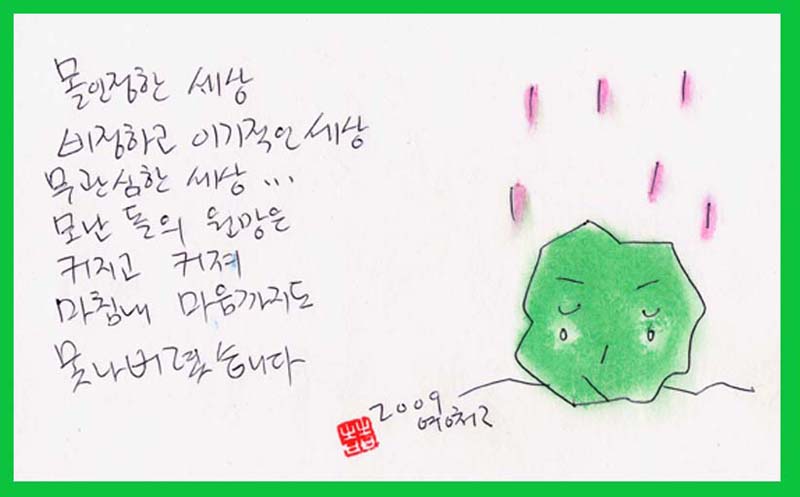 몰인정한 세상
비정하고 이기적인 세상
무관심한 세상...
모난 돌의 원망은
커지고 커져
마침내 마음까지도
못나버렸습니다
2009